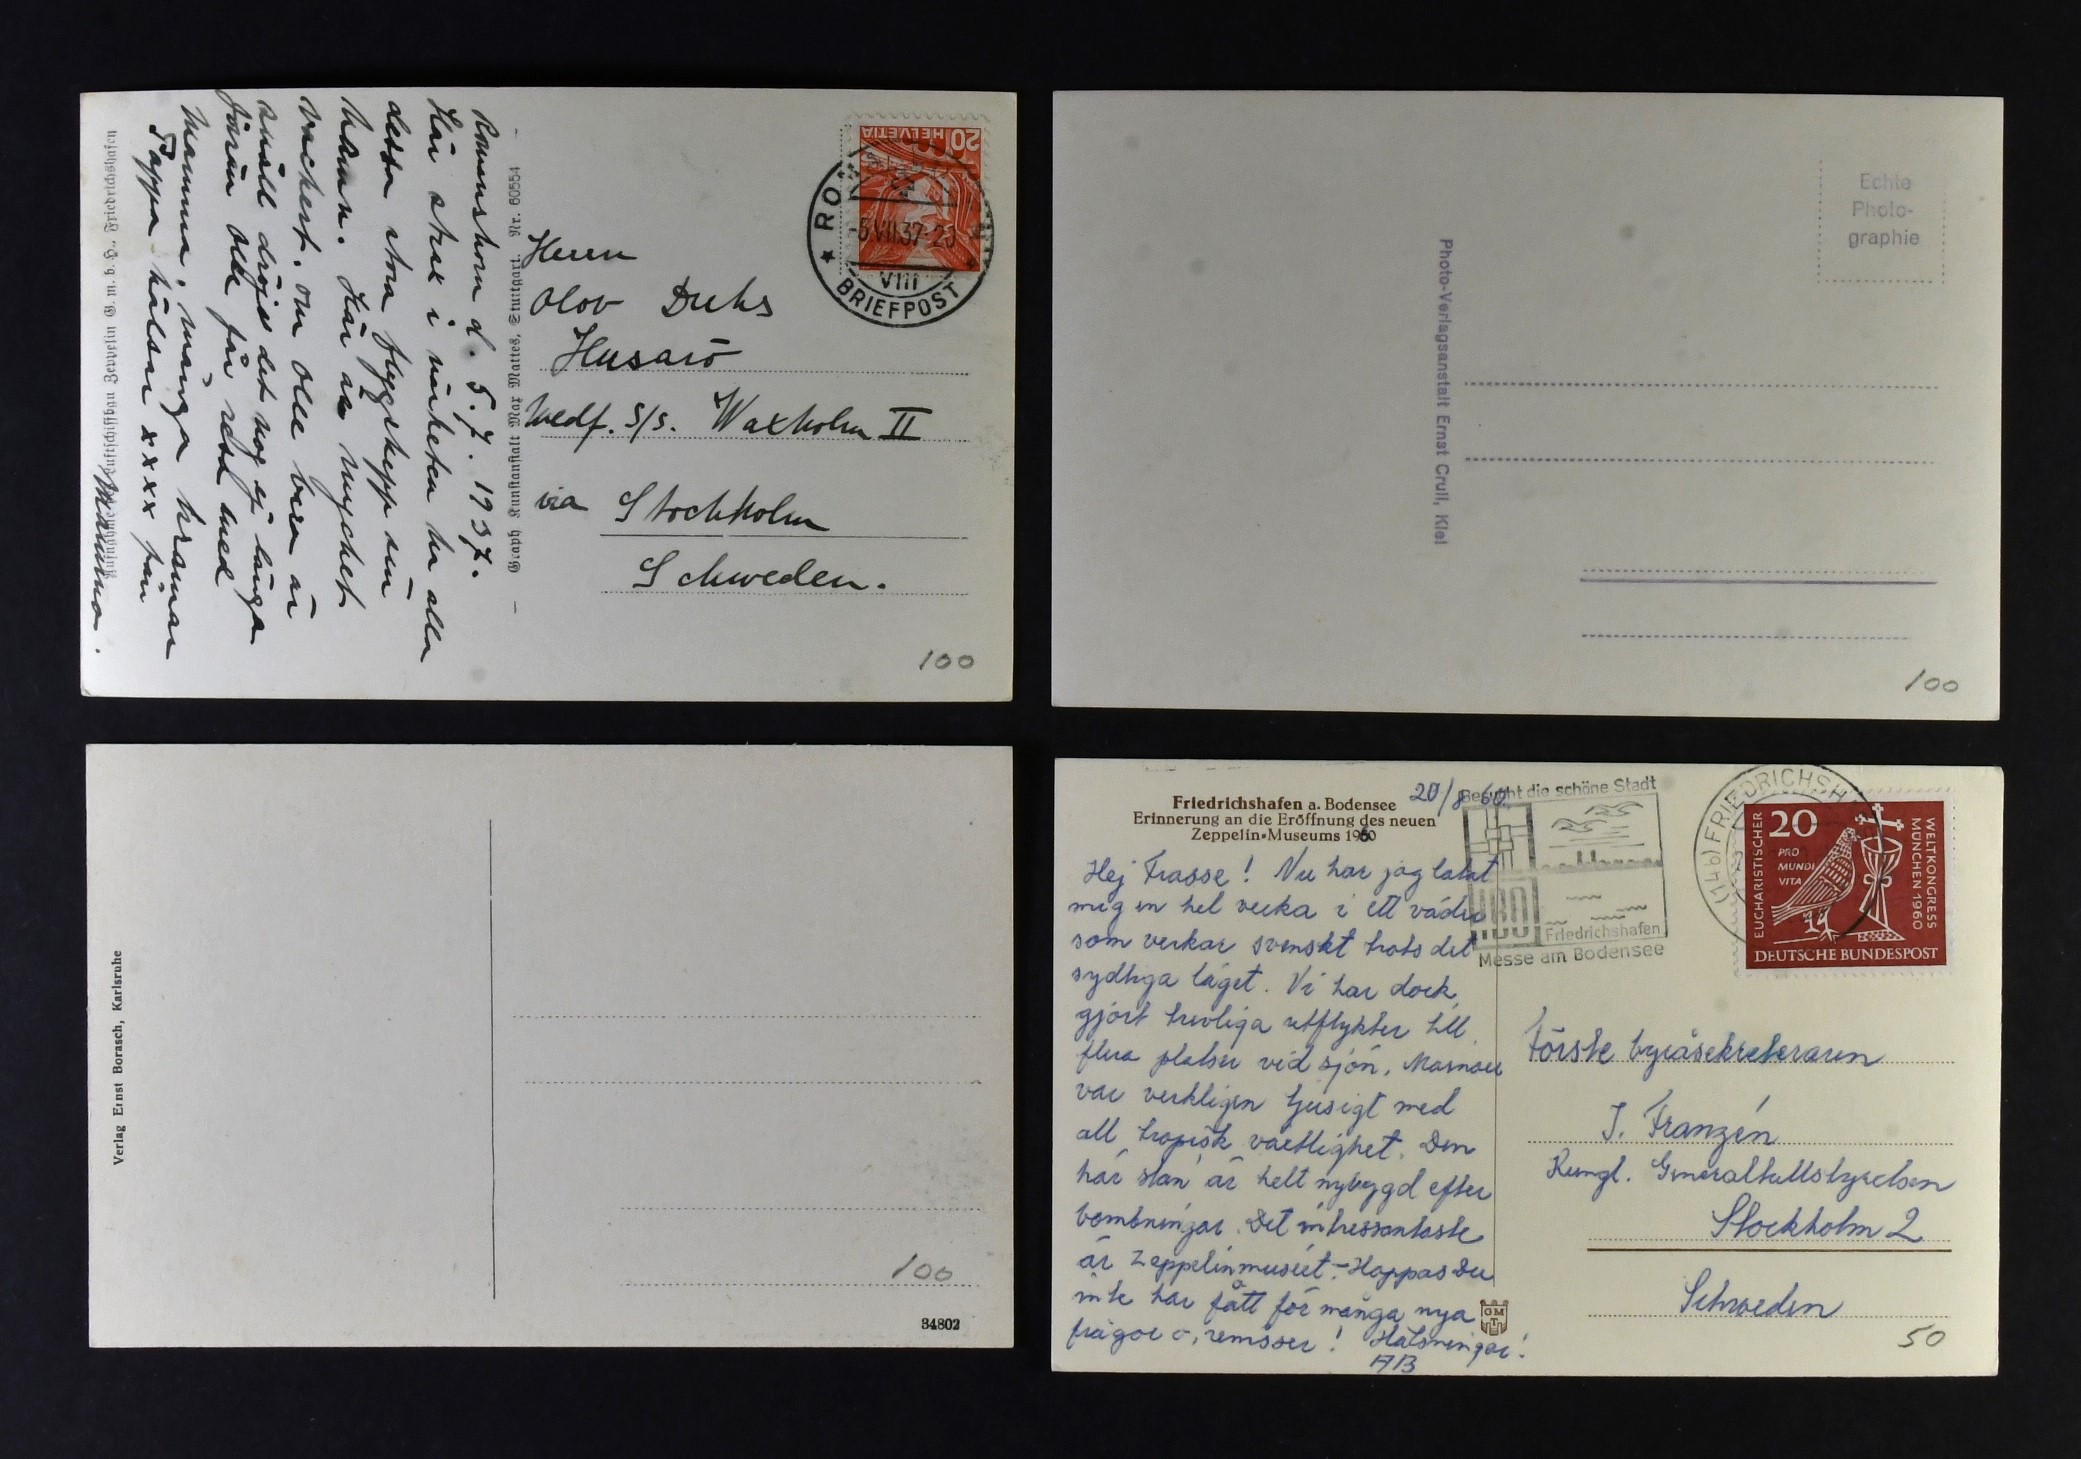 Romanshorn d. 5.7. 1937.
Här strax i närheten ha alla
dessa stora flygskepp sin
hamn. Här är mycket
vackert. Om Olle bara är
snäll dröjer det nog ej länga
förrän Olle får resa med
Mamma, många kramar
Pappa hälsar xxxx från
Mamma.
Luftschiffbau Zeppelin G. m. b. H., Friedrichshafen
Graph. Kunstanstalt Max Mattes, Stuttgart. Nr. 60554
20
HELVETIA
-5.VII.37.20
VIII
BRIEFPOST
Herrn
Olov
Husarö
medf. S/S. Waxholm II
via Stockholm
Schweden.
100
Echte
Photo-
graphie
Photo-Verlagsanstalt Ernst Crull, Kiel
100
Verlag Ernst Borasch, Karlsruhe
100
34802
Friedrichshafen a. Bodensee
Erinnerung an die Eröffnung des neuen
Zeppelin-Museums 1960
20/8 60.
Hej Frasse! Nu har jag latat
mig en hel vecka i ett väder
som verkar svenskt trots det
sydliga läget. Vi har dock
gjort trevliga utflykter till
flera platser vid sjön. Mainau
var verkligen tjusigt med
all tropisk växtlighet. Den
här stan är helt nybyggd efter
bombningar. Det intressantaste
är Zeppelinmuséet. - Hoppas Du
inte har fått för många nya
frågor o. remisser! Hälsningar!
AB
Besucht die schöne Stadt
IBO
Friedrichshafen
Messe am Bodensee
(14b) FRIEDRICHSH
EUCHARISTISCHER
WELTKONGRESS
MÜNCHEN 1960
20
PRO
MUNDI
VITA
DEUTSCHE BUNDESPOST
Förste byråsekreteraren
J. Franzén
Kungl. Generaltullstyrelsen
Stockholm 2
Schweden
GM
50